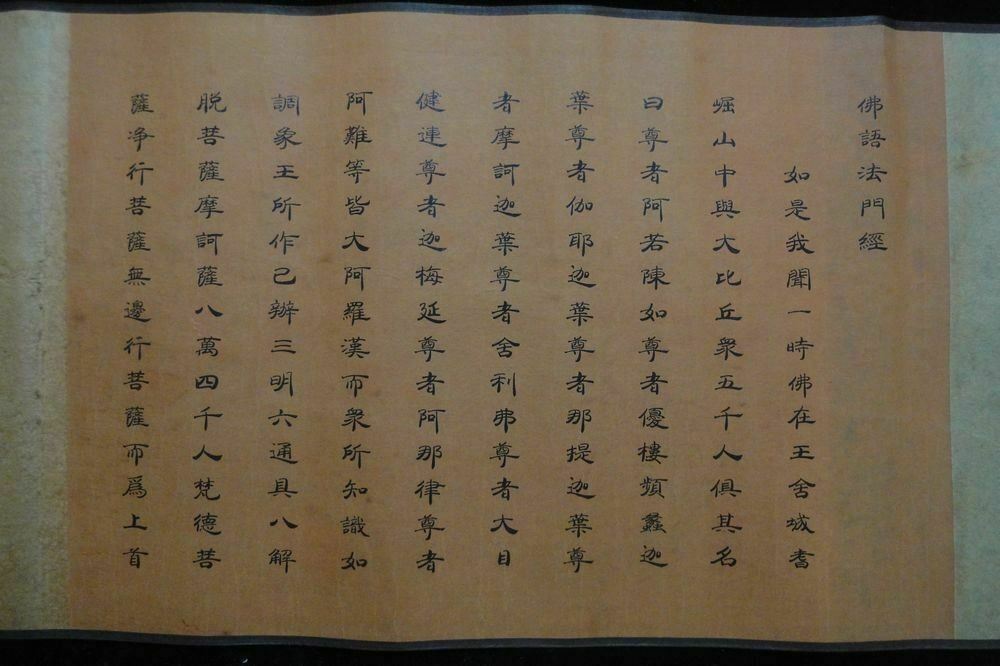 佛語法門經
如是我聞一時佛在王舍城耆
崛山中與大比丘衆五千人俱其名
曰尊者阿若陳如尊者優樓頻蠡迦
葉尊者伽耶迦葉尊者那提迦葉尊
者摩訶迦葉尊者舍利弗尊者大目
健連尊者迦梅延尊者阿那律尊者
阿難等皆大阿羅漢而衆所知識如
調象王所作已辦三明六通具八解
脫菩薩摩訶薩八萬四千人梵德菩
薩净行菩薩無邊行菩薩而爲上首